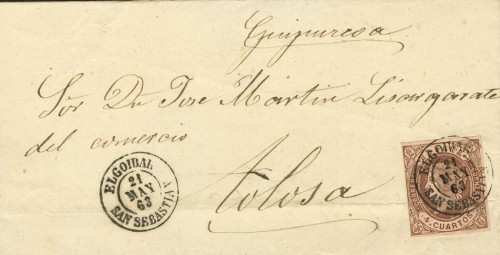 Guipuzcoa
Sor Dn Jose Martin Lisarragarate
del comercio
Tolosa
ELGOIBAR
21
MAY
63
SAN SEBASTIAN
ELGOIBAR
21
MAY
63
SAN SEBASTIAN
4 CUARTOS